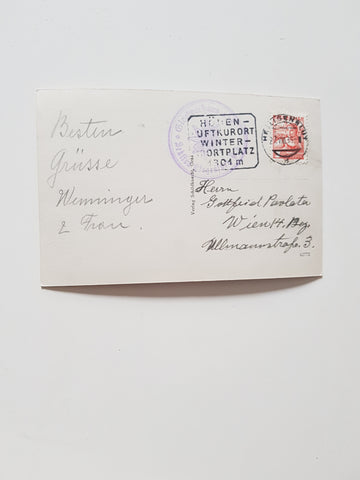 Besten
Grüsse
Wenninger
& Frau.
HÖHEN-
LUFTKURORT
WINTER-
SPORTPLATZ
1301 m
HEILIGENBLUT
Herrn
Gottfried Pavlata
Wien 14. Bez.
Ullmannstraße 3.